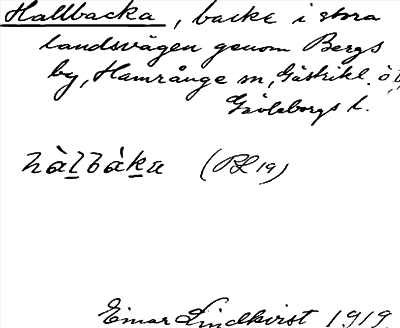 Hallbacka, backe i stora
landsvägen genom Bergs
by, Hamrånge sn, Gästrikl. ö t,
Gävleborgs l.
hàlbáka (BL 19)
Einar Lindkvist 1919